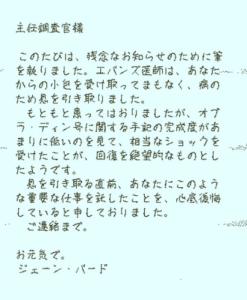 主任調査官様
このたびは、残念なお知らせのために筆
を執りました。エバンズ医師は、あなた
からの小包を受け取ってまもなく、病の
ため息を引き取りました。
もともと患ってはおりましたが、オブ
ラ・ディン号に関する手記の完成度があ
まりに低いのを見て、相当なショックを
受けたことが、回復を絶望的なものとし
たようです。
息を引き取る直前、あなたにこのよう
な重要な仕事を託したことを、心底後悔
していると申しておりました。
ご連絡まで。
お元気で。
ジェーン・バード